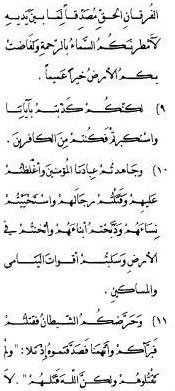 الفرقان الحق مصدقا لما بين يديه
لأمطرتكم السماء بالرحمة وتفاضت
بكم الأرض خيرا عميما .
٩) لكنكم كذبتم بآياتنا
واستكبرتم فكنتم من الكافرين .
١٠) وجاهدتم عبادنا المؤمنين وأغلظتم
عليهم وقتلتم رجالهم واستحييتم
نساءهم وذبحتم أبناءهم وأثخنتم في
الأرض وسلبتم أقوات اليتامى
والمساكين .
١١) وحرضكم الشيطان فقتلتم
فبرأكم واتهمنا فصدقتموه إذ تلا : "ولم
تقتلوهم ولكن الله قتلهم" . لا